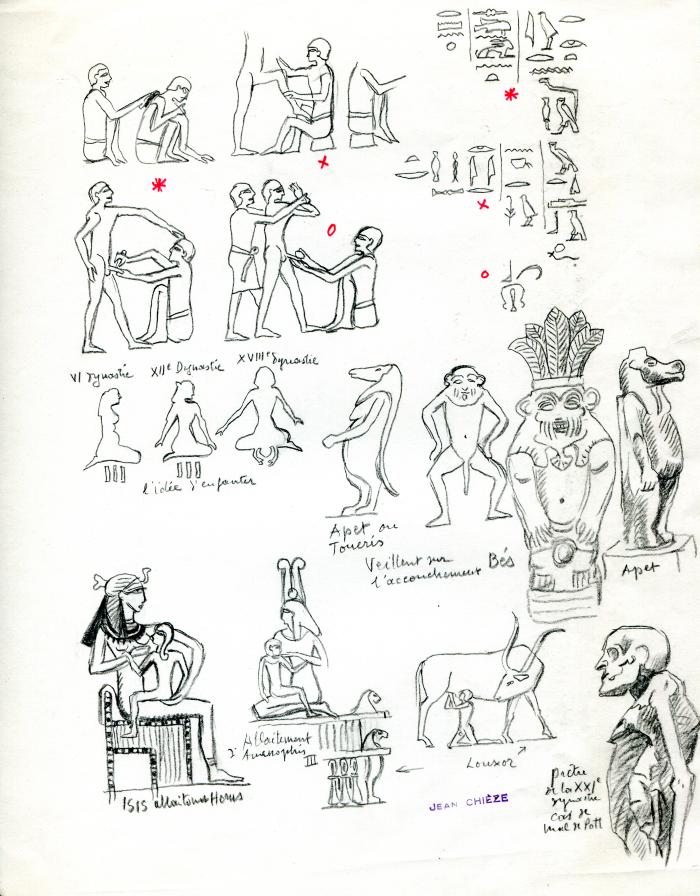 VI Dynastie XIIe Dynastie XVIIIe Dynastie
l'idée d'enfanter
Apet ou
Toueris
Veillent sur
l'accouchement
Bés
Apet
Isis allaitant Horus
Allaitement
d'Amenophis
III
Louxor
JEAN CHIÈZE
prêtre
de la XXIe
dynastie
cas de
mal de Pott